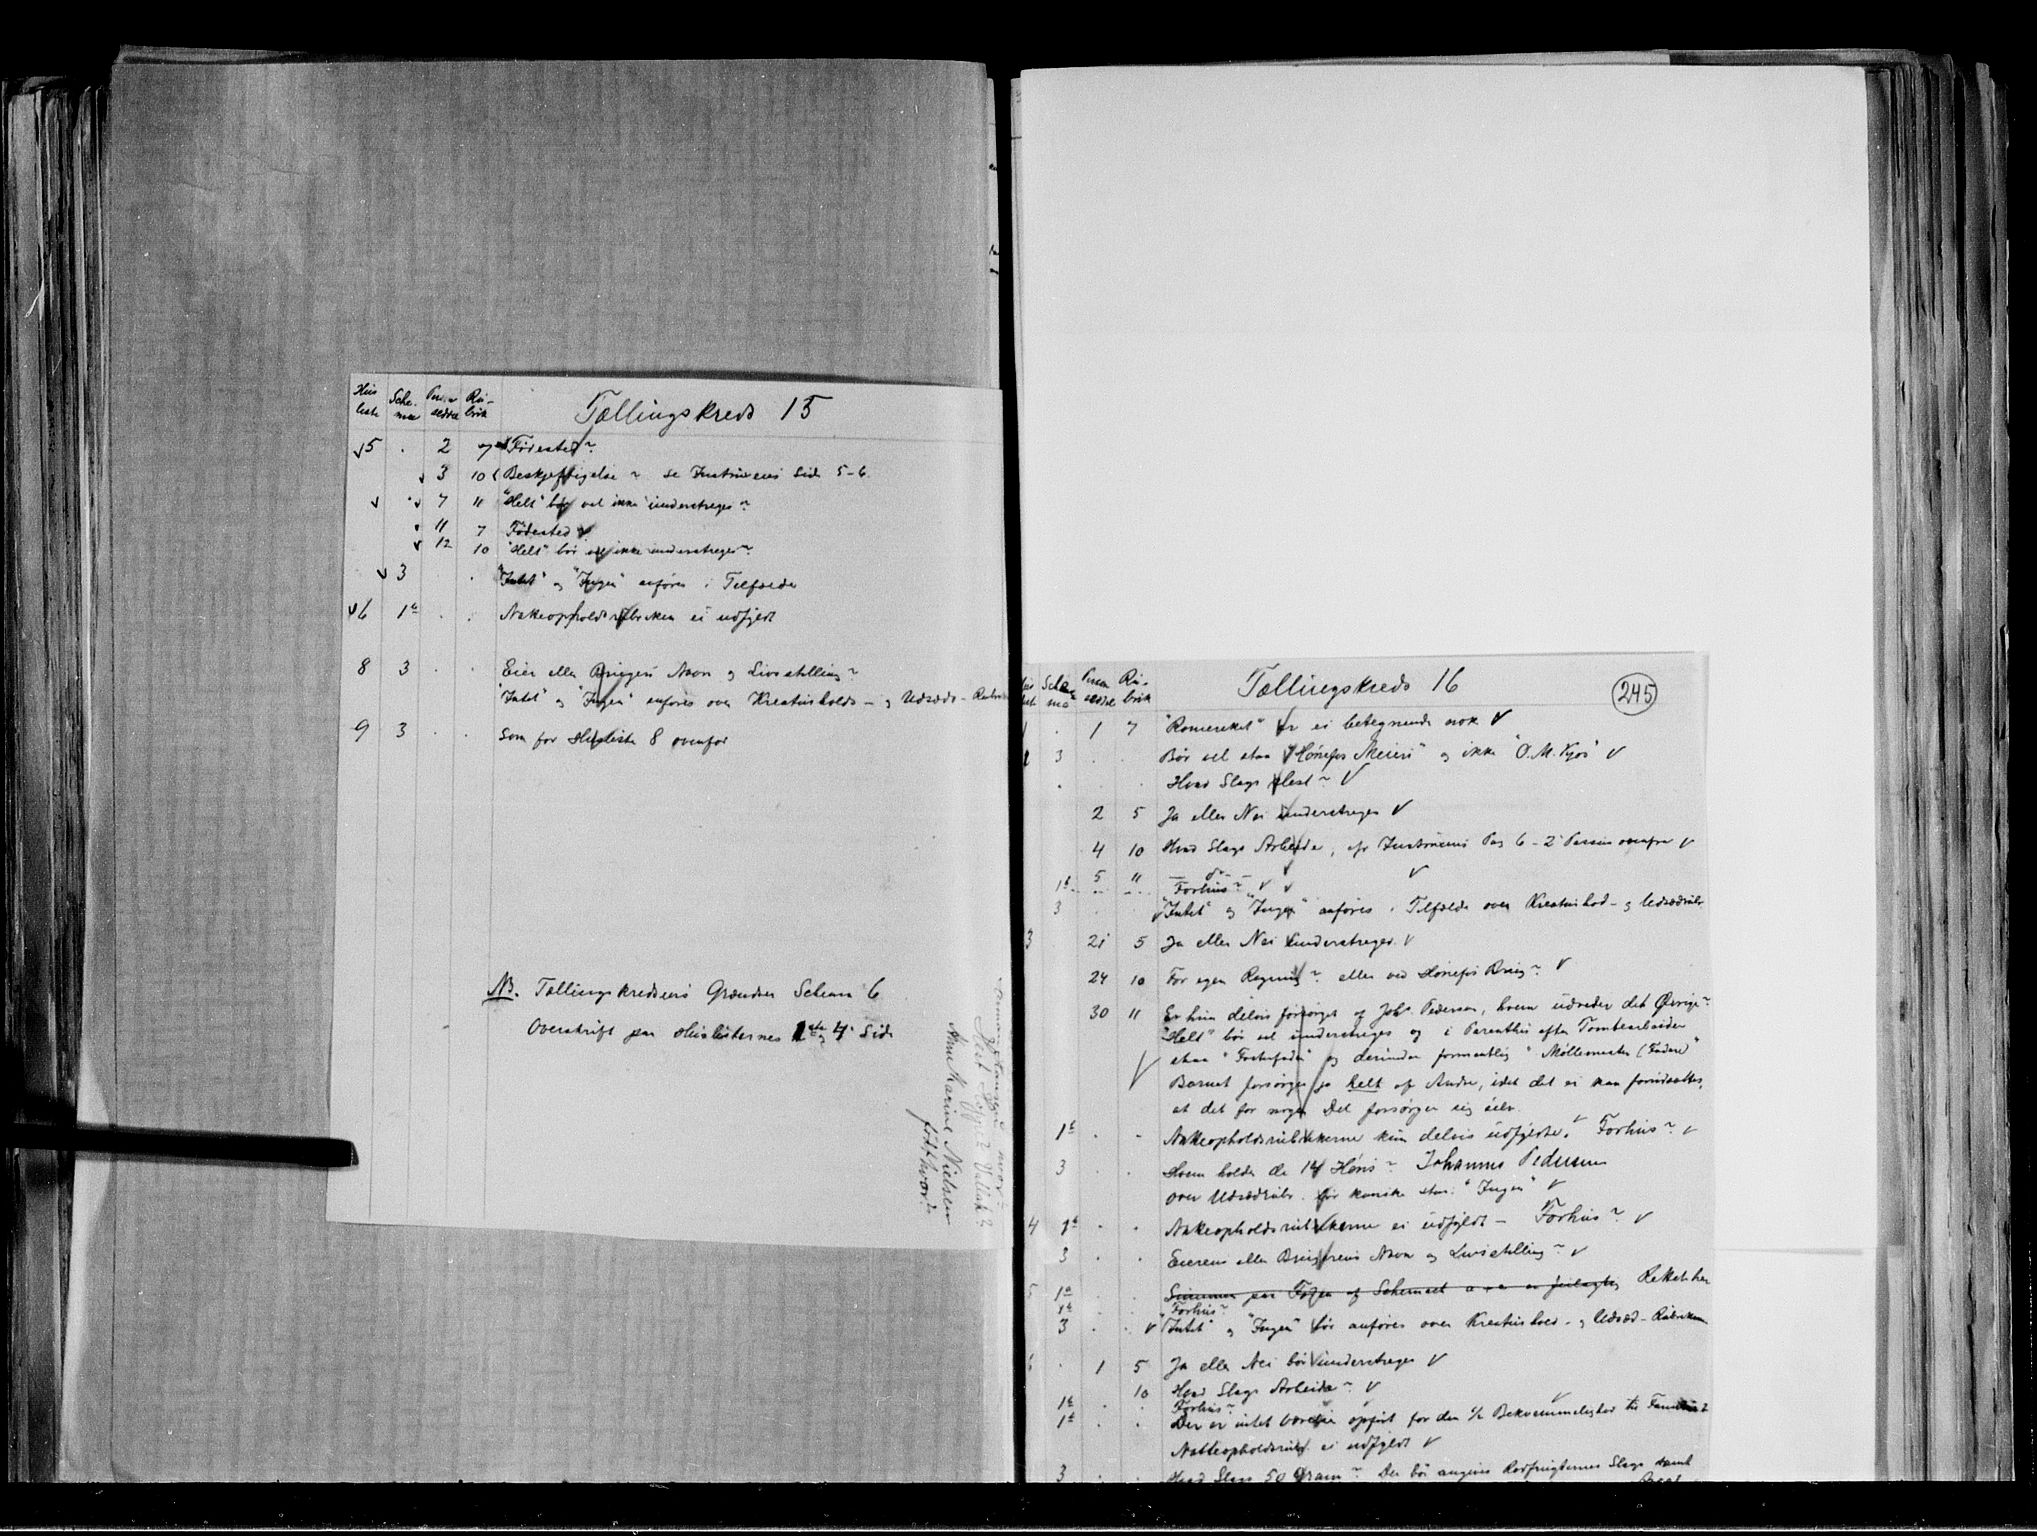 Hus liste Sche- ma Person sedler Ru- brik Tællingskreds 15
5 . 2 7 Fødested?
3 10 Beskjeftigelse? se Instruxens Side 5-6
7 11 "Helt" bør vel ikke understreges?
11 7 Fødested
12 10 "Helt" bør vel ikke understreges?
3 . . "Intet" og "Ingen" anføres i Tilfælde
6 1b . . Natteopholdsrubriken ei udfyldt
8 3 . . Eier eller Brugers Navn og Livsstilling?
"Intet" og "Ingen" anføres over Kreaturholds- og Udsæds-
9 3 . . Som for Husliste 8 ovenfor
NB. Tællingskredsens Grændser Schema 6
Overskrift paa Huslisternes 1ste og 4. Side
Anne Marine Nielsen
født hvor?
Sche- ma Person sedler Ru- brik Tællingskreds 16 245
1 . 1 7 "Romeriket" er ei betegnende nok
3 . . Bør vel staa "Hønefos Meieri" og ikke "O. M. Kjos"
. . Hvad Slags Hest?
2 5 Ja eller Nei understreges
4 10 Hvad Slags Arbeide, efr Instruxens Pag 6 - 2 Passus ovenfra
5 11 — do —
1b Forhus?
3 . "Intet" og "Ingen" anføres i Tilfælde over Kreaturhold- og Udsædrubr
3 21 5 Ja eller Nei understreges.
24 10 For egen Regning? eller ved Hønefos Brug?
30 11 Er hun delvis forsørget af Johs. Pedersen, hvem udreder det Øvrige?
"Helt" bør vel understreges og i Parenthes efter Tomtearbeider
staa "Fosterfader" og derunder formentlig "Møllemester (Fader)"
Barnet forsørges jo helt af Andre, idet det ei kan forudsættes,
at det for nogen Del forsørger sig selv.
1b . . Natteopholdsrubrikkerne kun delvis udfyldte. Forhus?
3 . Hvem holder de 14 Høns? Johannes Pedersen
over Udsædrubr. bør kanske staa: "Ingen"
4 1b . . Natteopholdsrubrikkerne ei udfyldt - Forhus?
3 . . Eierens eller Brugerens Navn og Livsstilling?
5 1a . . Summen paa Foden af Schemaet
1b "Forhus?
3 . . "Intet" og "Ingen" bør anføres over Kreaturhold- og Udsæd-Rubriken
6 . 1 5 Ja eller Nei bør understreges
10 Hvad Slags Arbeide?
1b . . Forhus?
1b . . Der er intet Værelse opført for den Bekvemmelighed til
Natteopholdsrubr. ei udfyldt
3 . . Hvad Slags 50 Gram? Der bør angives Rodfrugternes Slags samt